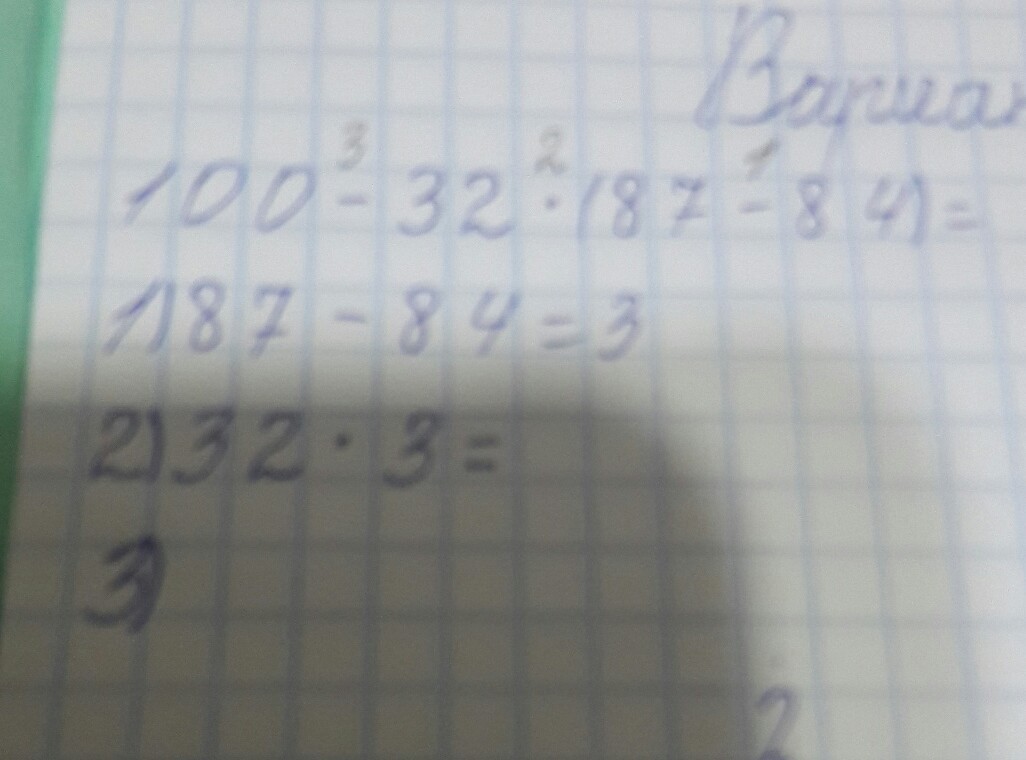 Вариан
3 2 1
100 - 32 · (87 - 84) =
1) 87 - 84 = 3
2) 32 · 3 =
3)
2